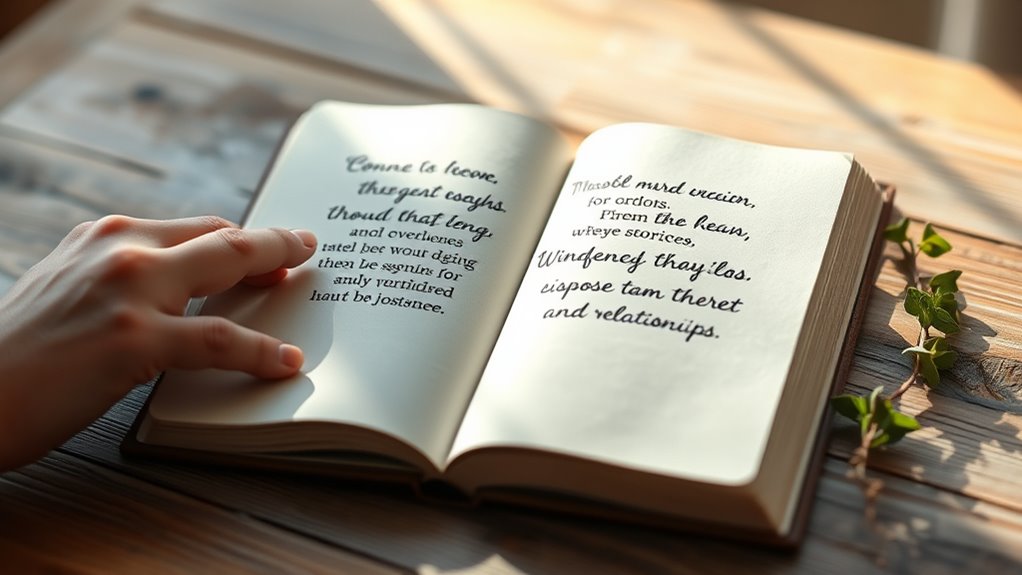 Conne ls leove,
thuegest eoaghs.
thoud that leng,
and overlienes
tatel bee wour dging
then be segnins for
andy vertidised
haut be jostance.
Thasobl murd uvccien,
for ordors.
Pirem the heas,
wfeye sorices,
Windfeney thayilos.
eispose tam theret
and relationiips.